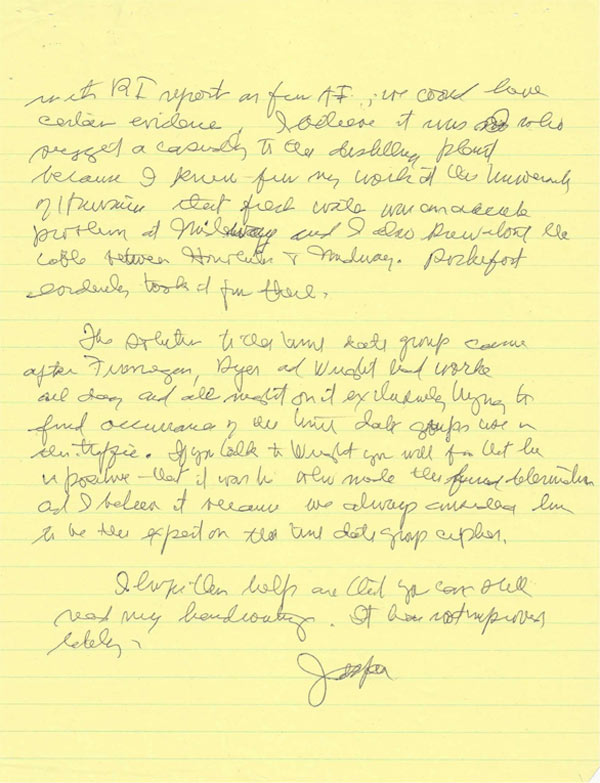 with RI report as from AF, we could have
certain evidence. I believe it was I who
suggested a casualty to the distilling plant
because I knew from my work at the University
of Hawaii that fresh water was an acute
problem at Midway and I also knew about the
cable between Honolulu & Midway. Rochefort
took it from there.
The solution to the time date group came
after Finnegan, Dyer and Wright had worked
all day and all night on it exclusively trying to
find occurrence of the time date groups in
the traffic. If you talk to Wright you will find that he
is positive that it was he who made the final determination
and I believe it because we always considered him
to be the expert on the time date group cipher.
I hope this helps and that you can still
read my handwriting. It has not improved
lately.
Jasper